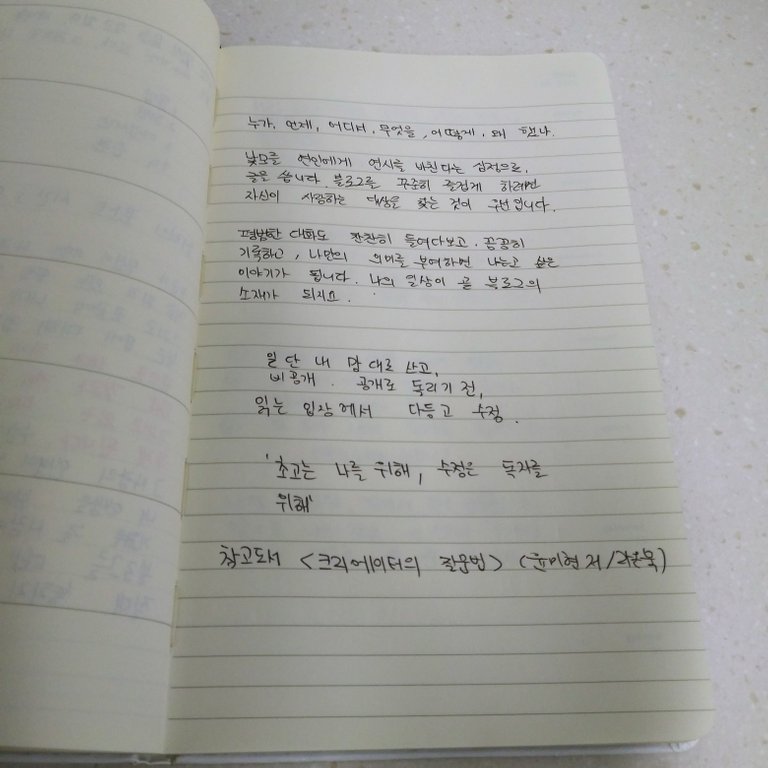 누가, 언제, 어디서, 무엇을, 어떻게, 왜 했나.
낯모를 연인에게 연시를 바친다는 심정으로,
글을 씁니다. 블로그를 꾸준히 즐겁게 하려면
자신이 사랑하는 대상을 찾는 것이 우선입니다.
평범한 대화도 찬찬히 들여다보고, 꼼꼼히
기록하고, 나만의 의미를 부여하면 나누고 싶은
이야기가 됩니다. 나의 일상이 곧 블로그의
소재가 되지요.
일단 내 맘 대로 쓰고,
비공개. 공개로 돌리기 전,
읽는 입장에서 다듬고 수정.
'초고는 나를 위해, 수정은 독자를
위해'
참고도서 <크리에이터의 질문법> (윤미현 저/라온북)